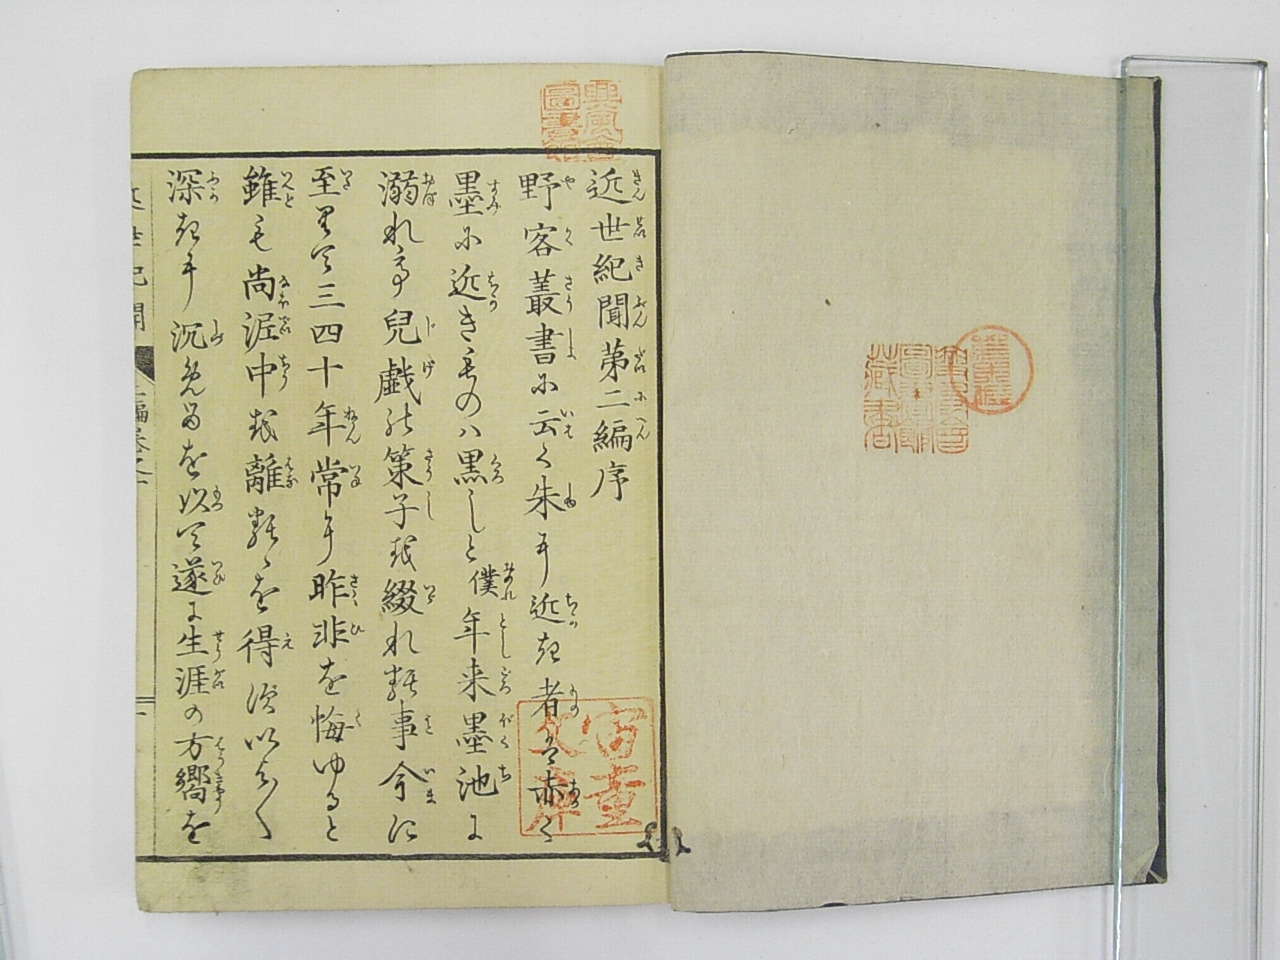 近世紀聞第二編序
野客叢書に云く朱に近き者は赤く
墨に近きものハ黒しと僕年来墨池に
溺れて兒戯の策子を綴れる事今に
至りて三四十年常に昨非を悔ゆると
雖も尚泥中を離るゝを得ず
深きに沉めるを以て遂に生涯の方嚮を
興風會
圖書館
藏書